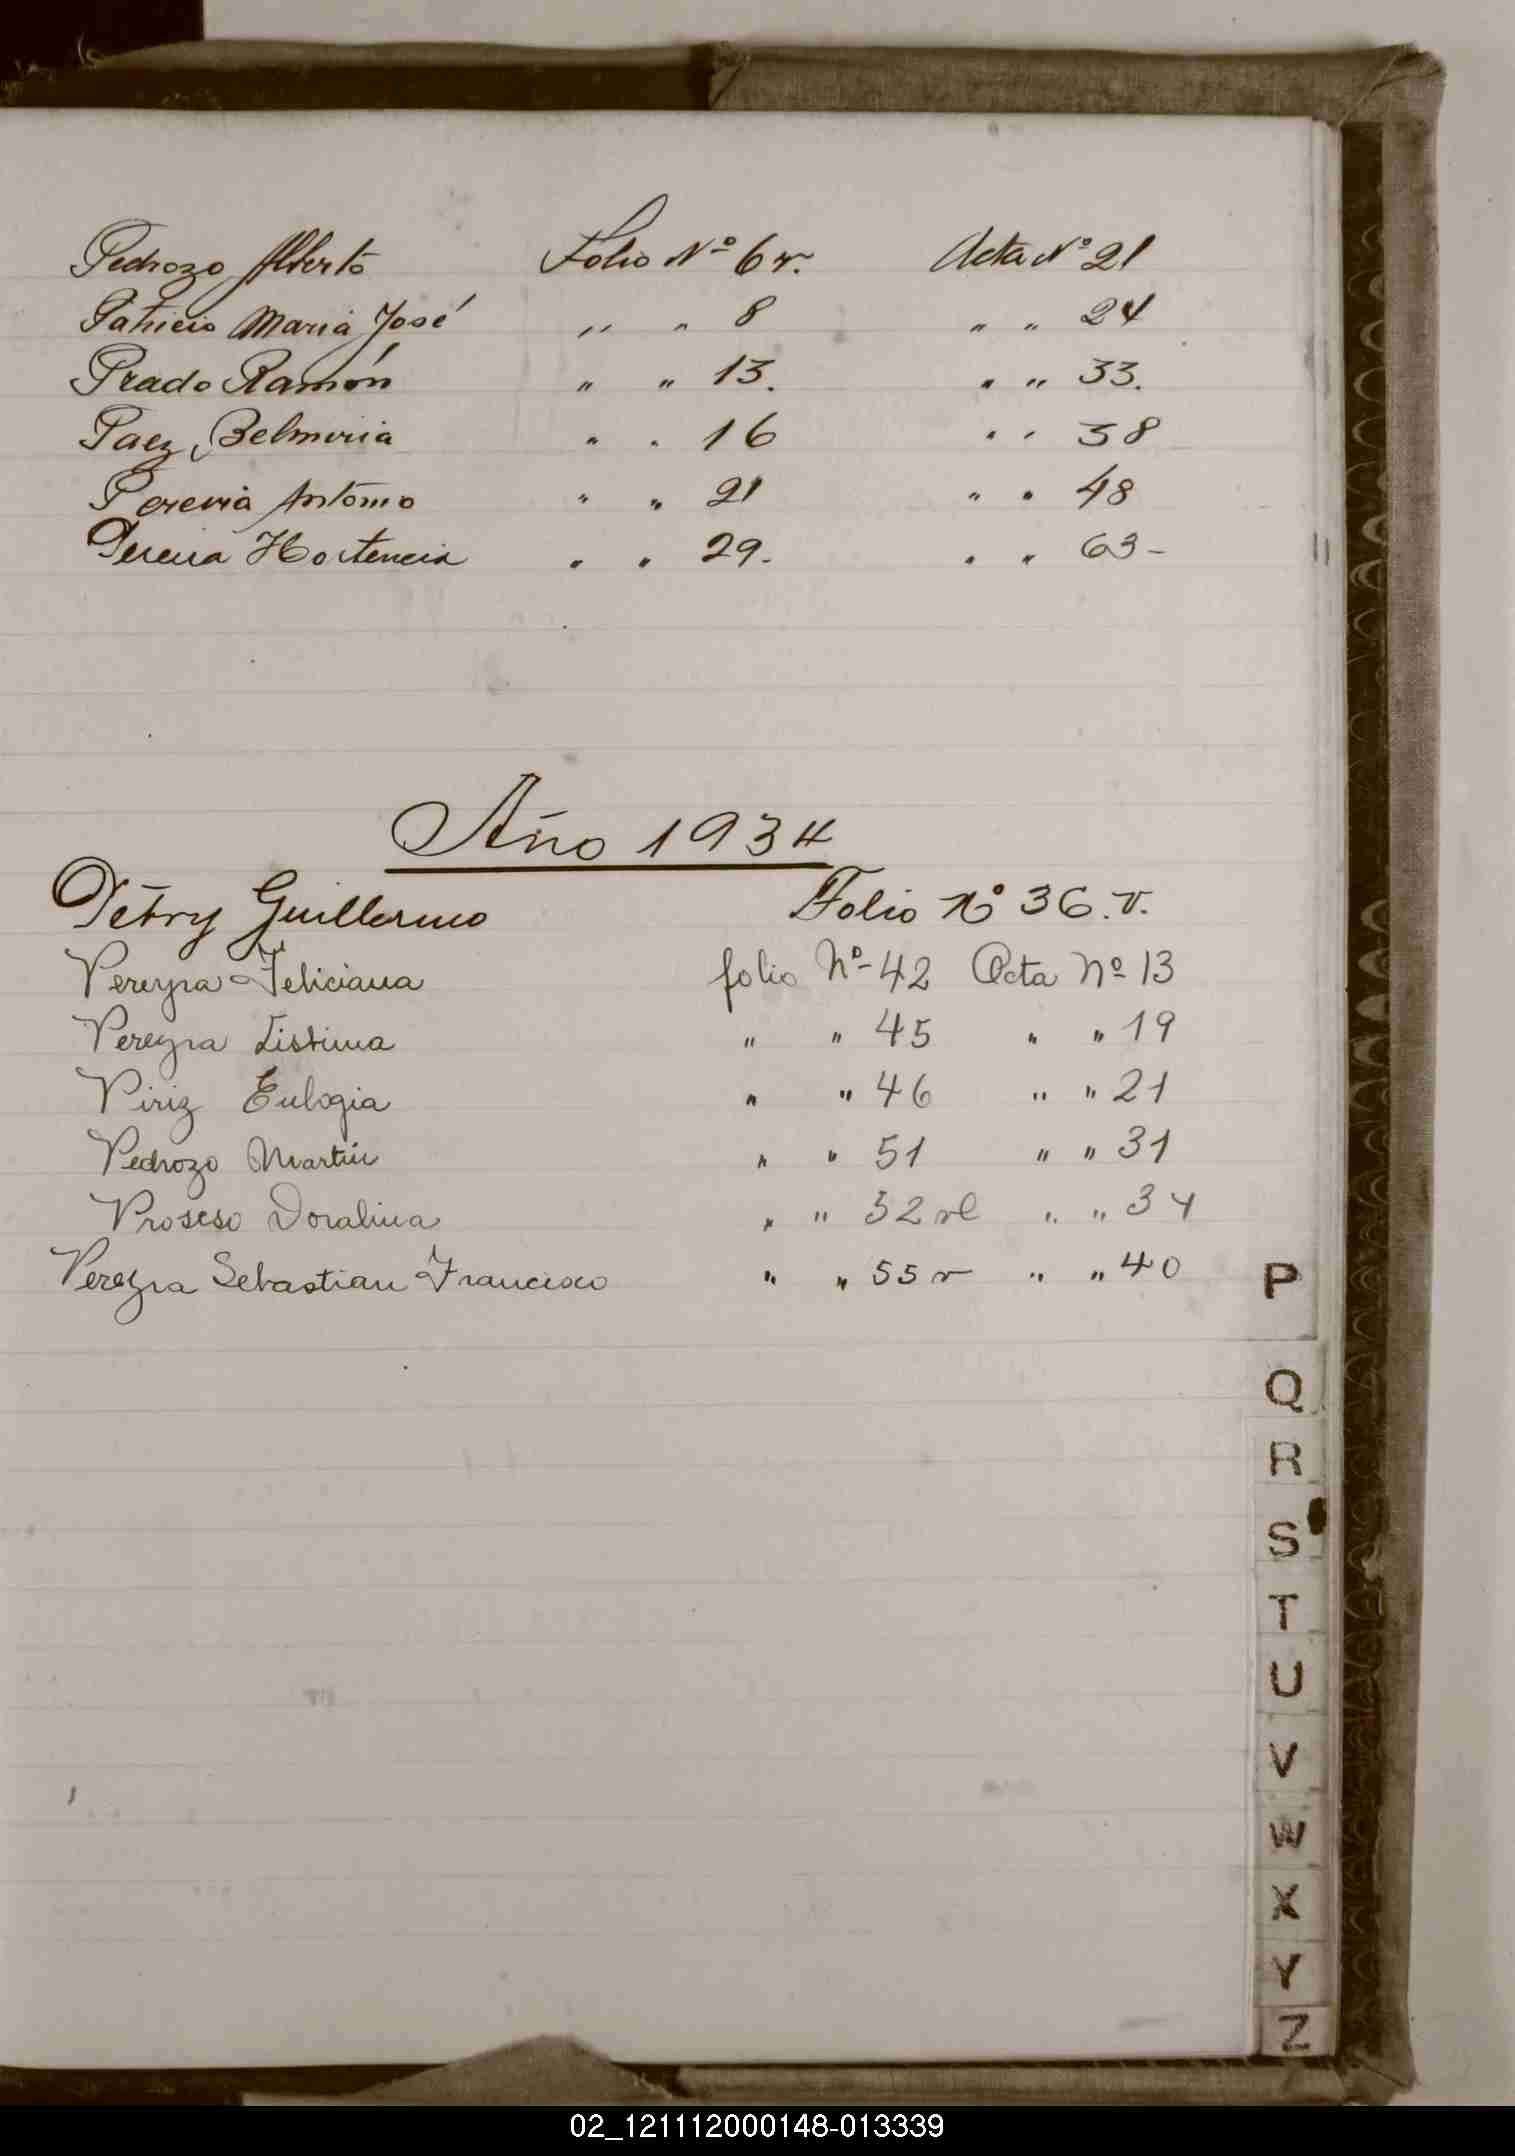 Pedrozo Alberto Folio Nº 6 v. Acta Nº 21
Patricio Maria José " " 8 " " 24
Prado Ramón " " 13. " " 33.
Paez, Belmiria " " 16 " " 38
Pereria Antonio " " 21 " " 48
Pereira Hortencia " " 29. " " 63-
Año 1934
Pétry Guillermo Folio Nº 36. v.
Pereyra Feliciana folio Nº 42 Acta Nº 13
Pereyra " " 45 " " 19
Piriz Eulogia " " 46 " " 21
Pedrozo Martin " " 51 " " 31
Proseso Doralina " " 52 vl " " 34
Pereyra Sebastian Francisco " " 55 v " " 40
P
Q
R
S
T
U
V
W
X
Y
Z
02_121112000148-013339